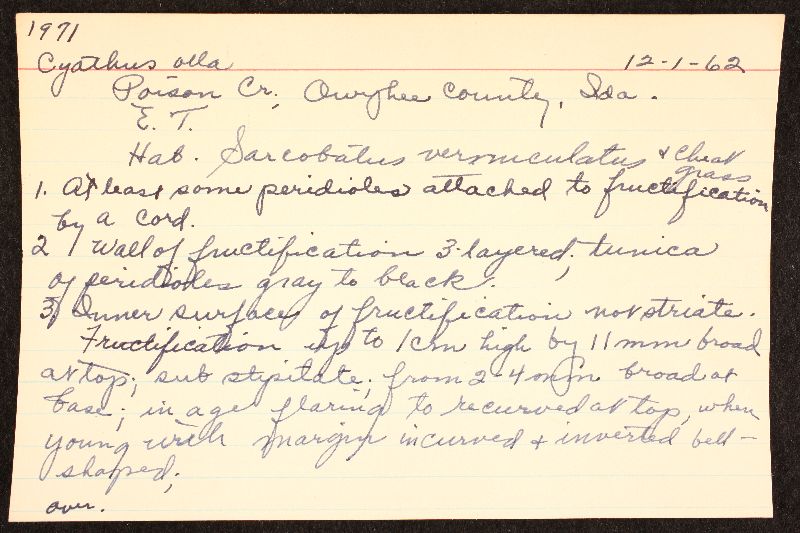 1971
Cyathus olla 12-1-62
Poison Cr., Owyhee County, Ida.
E. T.
Hab. Sarcobatus vermiculatus & cheat
grass
1. At least some peridioles attached to fructification
by a cord.
2 Wall of fructification 3-layered; tunica
of peridioles gray to black.
3. Inner surface of fructification not striate.
Fructification up to 1cm high by 11mm broad
at top; sub stipitate; from 2-4mm broad at
base; in age flaring to recurved at top, when
young with margin incurved & inverted bell-
shaped;
over.